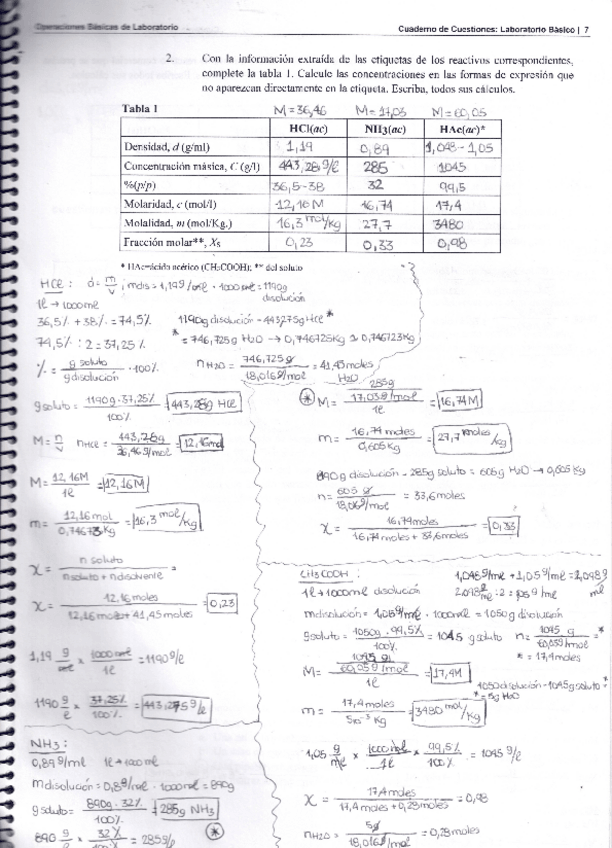 Operaciones Básicas de Laboratorio
Cuaderno de Cuestiones: Laboratorio Básico | 7
2. Con la información extraída de las etiquetas de los reactivos correspondientes,
complete la tabla 1. Calcule las concentraciones en las formas de expresión que
no aparezcan directamente en la etiqueta. Escriba, todos sus cálculos.
Tabla 1 M=36,46 M=17,03 M=60,05
HCl(ac) NH3(ac) HAc(ac)*
Densidad, d (g/ml) 1,19 0,89 1,048 - 1,05
Concentración másica, C (g/l) 443,28 g/l 285 1045
%(p/p) 36,5-38 32 99,5
Molaridad, c (mol/l) 12,16 M 16,74 17,4
Molalidad, m (mol/Kg.) 16,3 mol/kg 27,7 3480
Fracción molar**, Xs 0,23 0,33 0,98
* HAc=ácido acético (CH3COOH); ** del soluto
HCl: d = m/v ; mdis = 1,19 g/ml · 1000 ml = 1190g
disolución
1l → 1000ml
36,5% + 38% = 74,5%
74,5% : 2 = 37,25 %
% = g soluto / g disolución · 100%
g soluto = 1190g · 37,25% / 100% = 443,28g HCl
M = n/v nHCl = 443,28g / 36,46 g/mol = 12,16mol
M = 12,16M / 1l = 12,16M
m = 12,16 mol / 0,74673 kg = 16,3 mol/kg
X = n soluto / n soluto + n disolvente =
X = 12,16 moles / 12,16 moles + 41,45 moles = 0,23
1,19 g/ml x 1000ml / 1l = 1190 g/l
1190 g/l x 37,25% / 100% = 443,275 g/l
1190g disolución - 443,275g HCl *
* = 746,725g H2O → 0,746725Kg ≃ 0,746723Kg
nH2O = 746,725g / 18,016 g/mol = 41,45 moles
H2O
NH3:
0,89 g/ml 1l → 1000 ml
m disolución = 0,89/ml · 1000ml = 890g
g soluto = 890g · 32% / 100% = 285g NH3
890 g/l x 32% / 100% = 285 g/l *
* M = 285g / 17,03 g/mol / 1l = 16,74 M
m = 16,74 moles / 0,605 kg = 27,7 moles/kg
890g disolución - 285g soluto = 605g H2O → 0,605 kg
n = 605 g / 18,016 g/mol = 33,6 moles
X = 16,74 moles / 16,74 moles + 33,6 moles = 0,33
CH3COOH: 1,048 g/ml + 1,05 g/ml = 2,098 g/ml
1l → 1000ml disolución 2,098 g/ml : 2 = 1,05 g/ml
m disolución = 1,05 g/ml · 1000ml = 1050g disolución
g soluto = 1050g · 99,5% / 100% = 1045 g soluto n = 1045 g / 60,05 g/mol = *
* = 17,4 moles
M = 1045 g / 60,05 g/mol / 1l = 17,4M
1050 disolución - 1045g soluto = *
* = 5g H2O
m = 17,4 moles / 5x10⁻³ kg = 3480 mol/kg
1,05 g/ml x 1000 ml / 1l x 99,5% / 100% = 1045 g/l
X = 17,4 moles / 17,4 moles + 0,28 moles = 0,98
nH2O = 5g / 18,016 g/mol = 0,28 moles